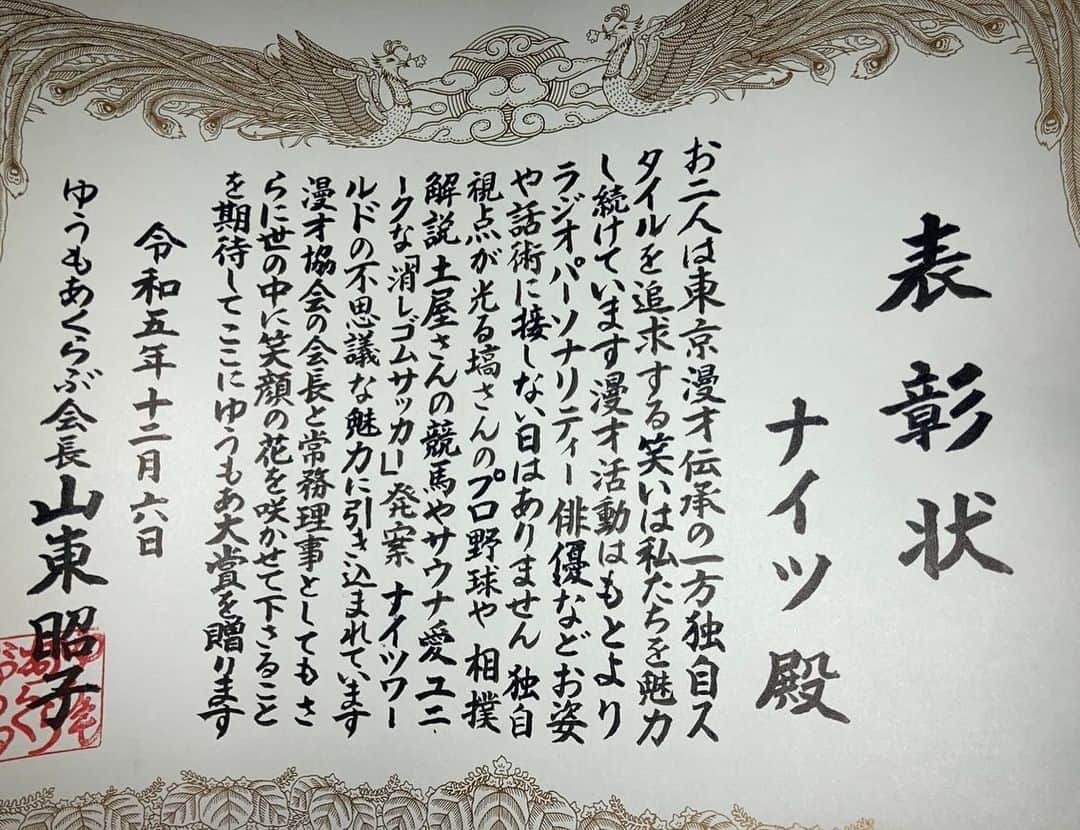 表彰状
ナイツ殿
お二人は東京漫才伝承の一方独自ス
タイルを追求する笑いは私たちを魅力
し続けています漫才活動はもとより
ラジオパーソナリティー俳優などお姿
や話術に接しない日はありません 独自
視点が光る塙さんのプロ野球や 相撲
解説 土屋さんの競馬やサウナ愛 ユニ
ークな「消しゴムサッカー」発案 ナイツワー
ルドの不思議な魅力に引き込まれています
漫才協会の会長と常務理事としてもさ
らに世の中に笑顔の花を咲かせて下さること
を期待してここにゆうもあ大賞を贈ります
令和五年十二月六日
ゆうもあくらぶ会長 山東昭子